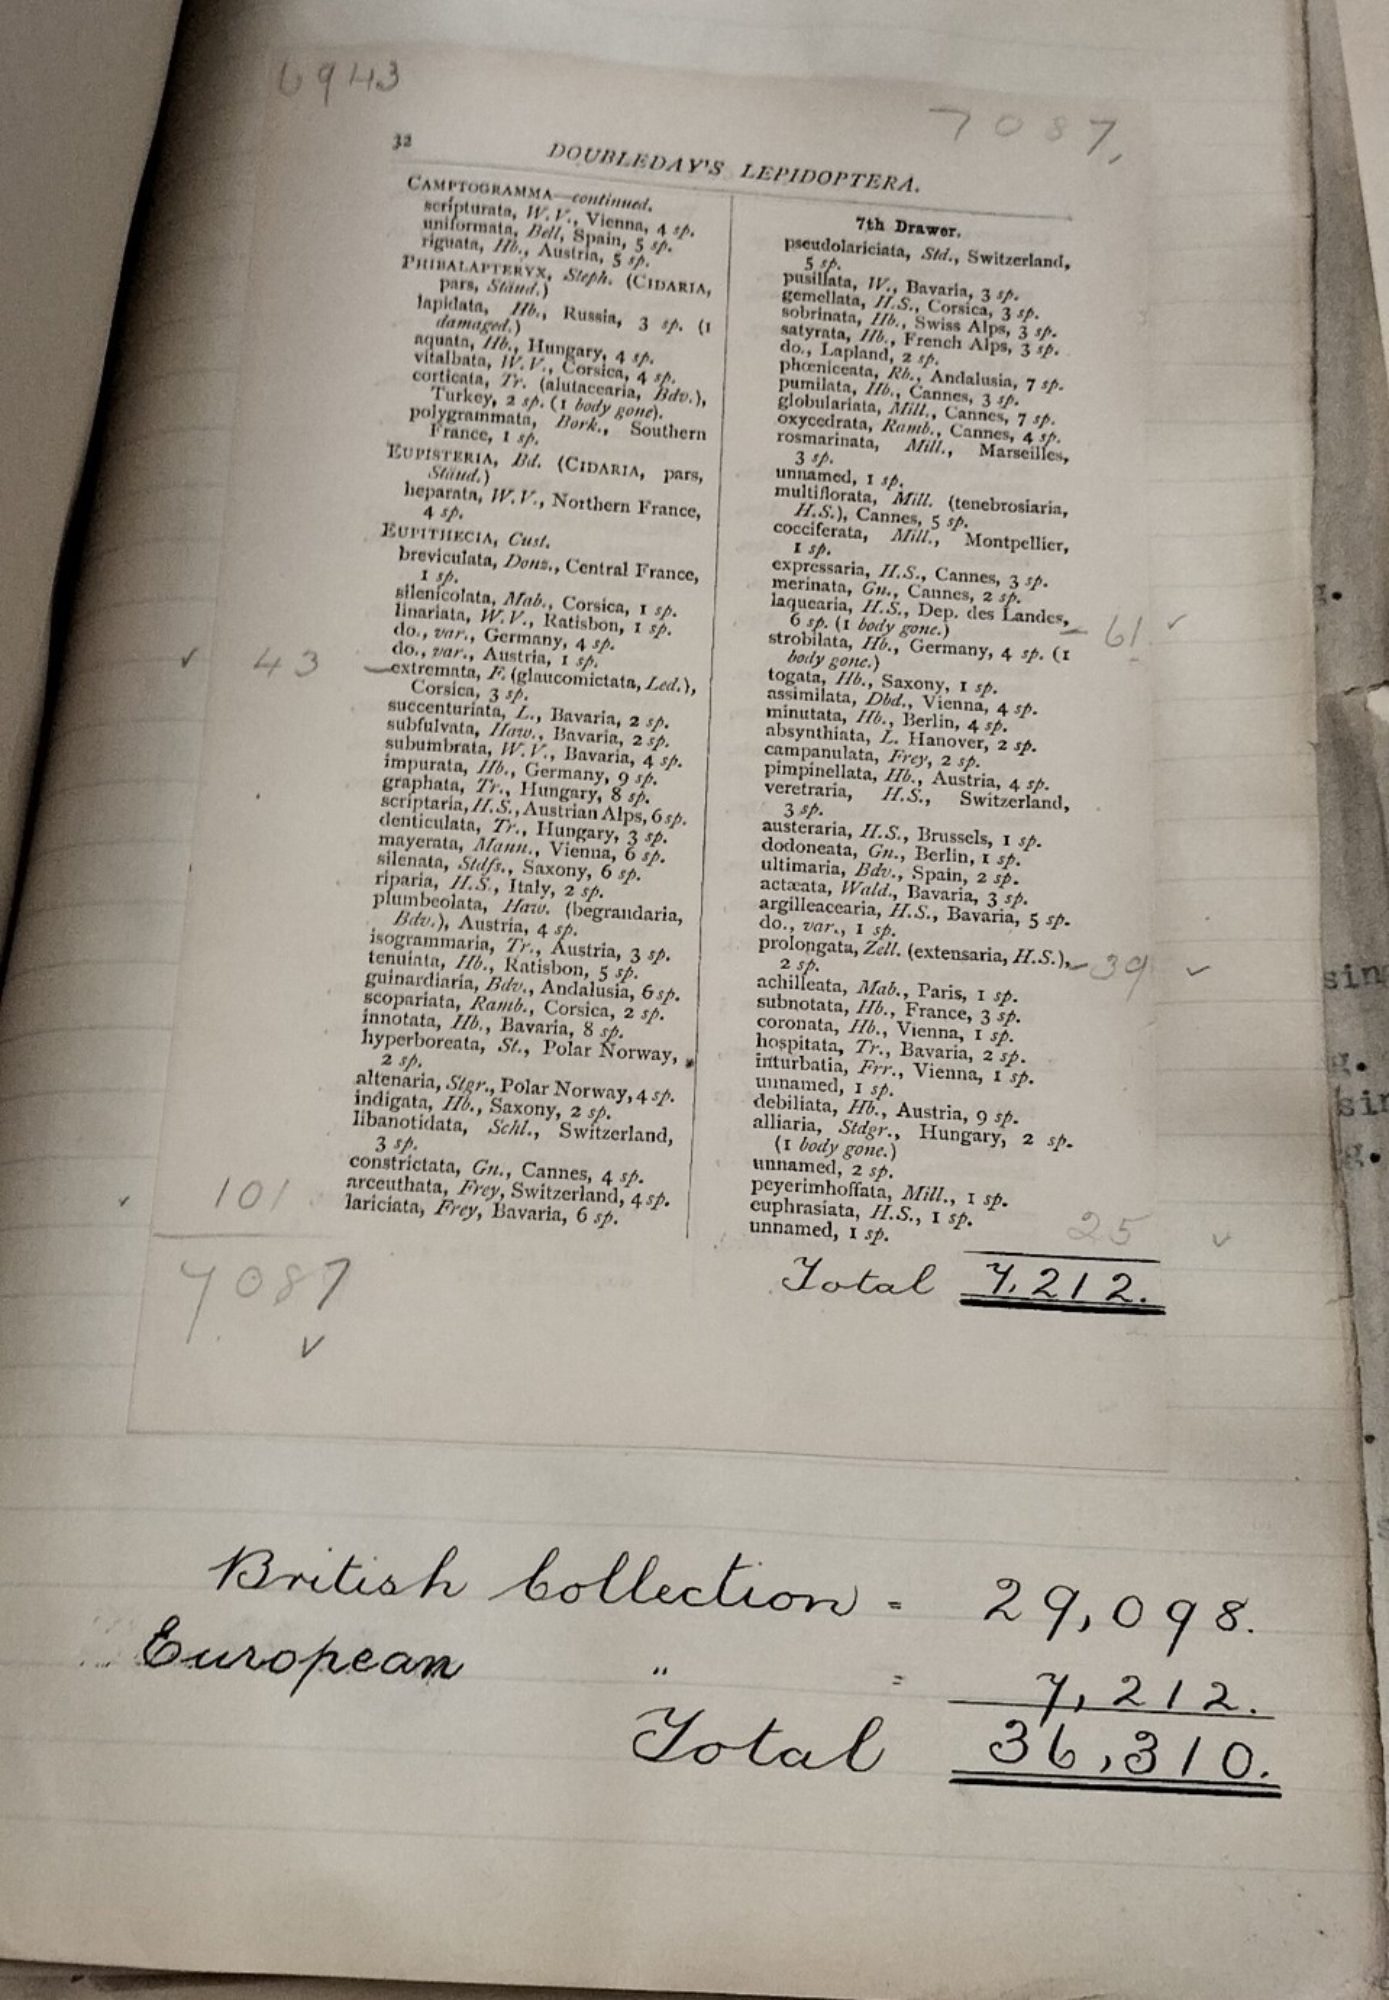 6943
7087,
32
DOUBLEDAY'S LEPIDOPTERA.
CAMPTOGRAMMA—continued.
scripturata, W.V., Vienna, 4 sp.
uniformata, Bell, Spain, 5 sp.
riguata, Hb., Austria, 5 sp.
PHIBALAPTERYX, Steph. (CIDARIA,
pars, Staud.)
lapidata, Hb., Russia, 3 sp. (1
damaged.)
aquata, Hb., Hungary, 4 sp.
vitalbata, W.V., Corsica, 4 sp.
corticata, Tr. (alutacearia, Bdv.),
Turkey, 2 sp. (1 body gone).
polygrammata, Bork., Southern
France, 1 sp.
EUPISTERIA, Bd. (CIDARIA, pars,
Staud.)
heparata, W.V., Northern France,
4 sp.
EUPITHECIA, Cust.
breviculata, Donz., Central France,
1 sp.
silenicolata, Mab., Corsica, 1 sp.
linariata, W.V., Ratisbon, 1 sp.
do., var., Germany, 4 sp.
do., var., Austria, 1 sp.
✓ 43 — extremata, F. (glaucomictata, Led.),
Corsica, 3 sp.
succenturiata, L., Bavaria, 2 sp.
subfulvata, Haw., Bavaria, 2 sp.
subumbrata, W.V., Bavaria, 4 sp.
impurata, Hb., Germany, 9 sp.
graphata, Tr., Hungary, 8 sp.
scriptaria, H.S., Austrian Alps, 6 sp.
denticulata, Tr., Hungary, 3 sp.
mayerata, Mann., Vienna, 6 sp.
silenata, Stdfs., Saxony, 6 sp.
riparia, H.S., Italy, 2 sp.
plumbeolata, Haw. (begrandaria,
Bdv.), Austria, 4 sp.
isogrammaria, Tr., Austria, 3 sp.
tenuiata, Hb., Ratisbon, 5 sp.
guinardiaria, Bdv., Andalusia, 6 sp.
scopariata, Ramb., Corsica, 2 sp.
innotata, Hb., Bavaria, 8 sp.
hyperboreata, St., Polar Norway,
2 sp.
altenaria, Stgr., Polar Norway, 4 sp.
indigata, Hb., Saxony, 2 sp.
libanotidata, Schl., Switzerland,
3 sp.
constrictata, Gn., Cannes, 4 sp.
arceuthata, Frey, Switzerland, 4 sp.
lariciata, Frey, Bavaria, 6 sp.
✓ 101
7087
✓
7th Drawer.
pseudolariciata, Std., Switzerland,
5 sp.
pusillata, W., Bavaria, 3 sp.
gemellata, H.S., Corsica, 3 sp.
sobrinata, Hb., Swiss Alps, 3 sp.
satyrata, Hb., French Alps, 3 sp.
do., Lapland, 2 sp.
phœniceata, Rb., Andalusia, 7 sp.
pumilata, Hb., Cannes, 3 sp.
globulariata, Mill., Cannes, 7 sp.
oxycedrata, Ramb., Cannes, 4 sp.
rosmarinata, Mill., Marseilles,
3 sp.
unnamed, 1 sp.
multiflorata, Mill. (tenebrosiaria,
H.S.), Cannes, 5 sp.
cocciferata, Mill., Montpellier,
1 sp.
expressaria, H.S., Cannes, 3 sp.
merinata, Gn., Cannes, 2 sp.
laquearia, H.S., Dep. des Landes,
6 sp. (1 body gone.) — 61 ✓
strobilata, Hb., Germany, 4 sp. (1
body gone.)
togata, Hb., Saxony, 1 sp.
assimilata, Dbd., Vienna, 4 sp.
minutata, Hb., Berlin, 4 sp.
absynthiata, L. Hanover, 2 sp.
campanulata, Frey, 2 sp.
pimpinellata, Hb., Austria, 4 sp.
veretraria, H.S., Switzerland,
3 sp.
austeraria, H.S., Brussels, 1 sp.
dodoneata, Gn., Berlin, 1 sp.
ultimaria, Bdv., Spain, 2 sp.
actæata, Wald., Bavaria, 3 sp.
argilleacearia, H.S., Bavaria, 5 sp.
do., var., 1 sp.
prolongata, Zell. (extensaria, H.S.), — 39 ✓
2 sp.
achilleata, Mab., Paris, 1 sp.
subnotata, Hb., France, 3 sp.
coronata, Hb., Vienna, 1 sp.
hospitata, Tr., Bavaria, 2 sp.
inturbatia, Frr., Vienna, 1 sp.
unnamed, 1 sp.
debiliata, Hb., Austria, 9 sp.
alliaria, Stdgr., Hungary, 2 sp.
(1 body gone.)
unnamed, 2 sp.
peyerimhoffata, Mill., 1 sp.
euphrasiata, H.S., 1 sp.
unnamed, 1 sp. 25 ✓
Total 7,212.
British Collection = 29,098.
European " = 7,212.
Total 36,310.